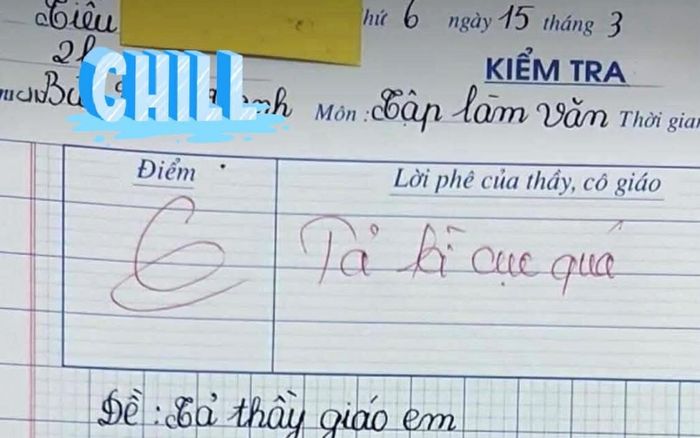 Tiêu thứ 6 ngày 15 tháng 3
2
CHILL
KIỂM TRA
Môn : Tập làm văn Thời gian
Điểm
Lời phê của thầy, cô giáo
6
Tả kì cục quá
Đề : Tả thầy giáo em